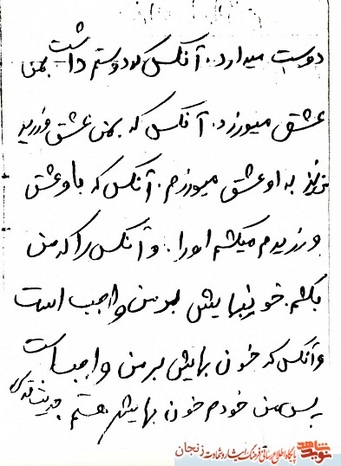 دوست میدارد. آنکس که دوستم داشت بمن
عشق میورزد. آنکس که بمن عشق ورزید
من نیز به او عشق میورزم. آنکس که با او عشق
ورزیدم میکشم او را. و آنکس را که من
بکشم. خونبهایش بر من واجب است
و آنکس که خون بهایش بر من واجب است
پس من خودم خون بهایش هستم.
نوید شاهد
پایگاه اطلاع رسانی فرهنگ ایثار و شهادت زنجان